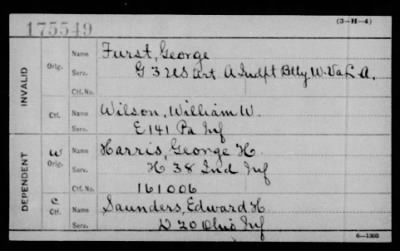 175549
(3-H-4)
INVALID
Orig. Name Furst, George
Serv. G 3 US Art A Indpt Btty W. Va L A.
Ctf. No.
Ctf. Name Wilson, William W.
Serv. E 141 Pa Inf
DEPENDENT
W Orig. Name Harris, George H.
Serv. H 38 Ind Inf
Ctf. No. 161006
C Ctf. Name Saunders, Edward H
Serv. D 20 Ohio Inf